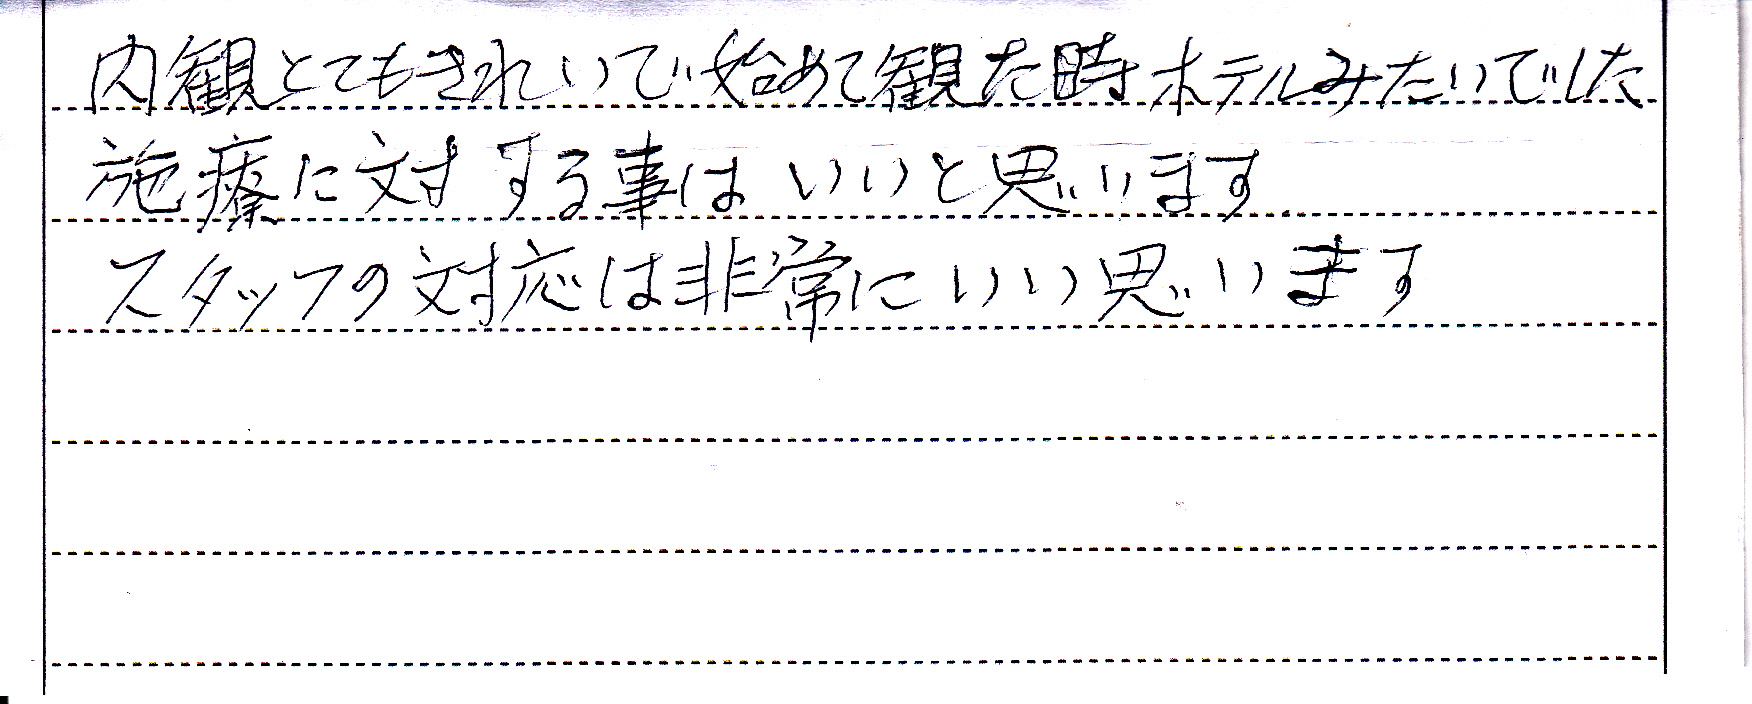 内観とてもきれいで始めて観た時ホテルみたいでした
施療に対する事はいいと思います
スタッフの対応は非常にいい思います